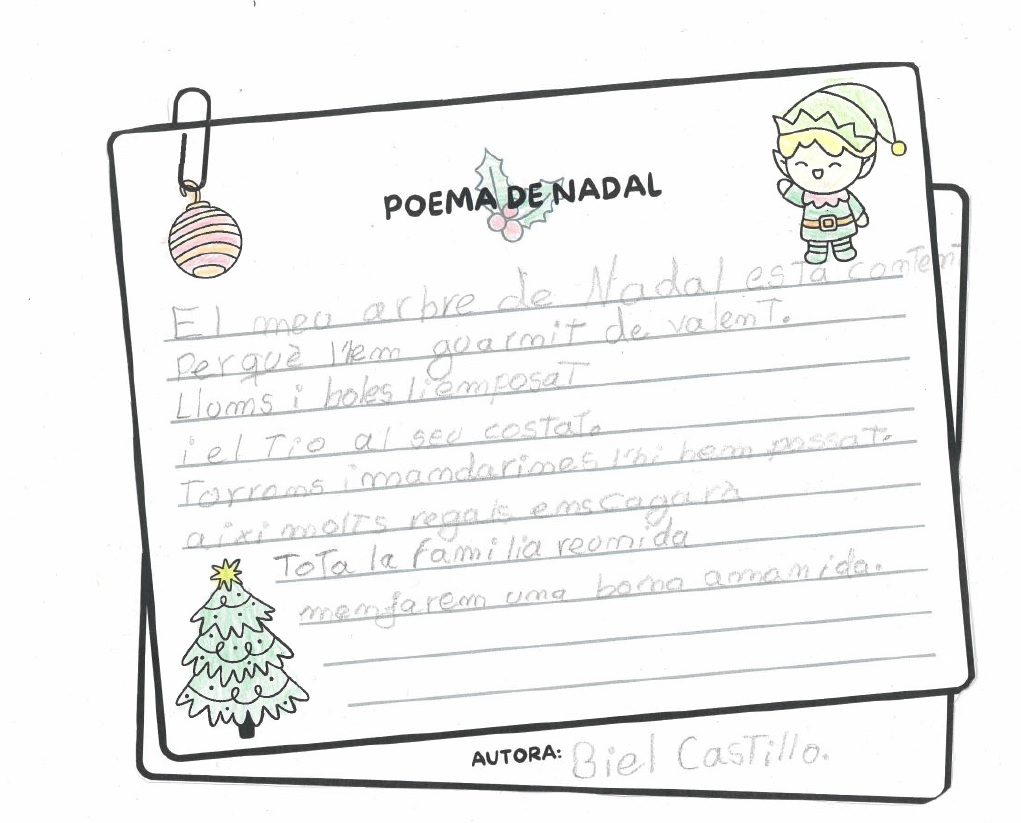 POEMA DE NADAL
El meu arbre de Nadal està content
Perquè l'hem guarnit de valent.
Llums i boles li emposat
i el Tio al seu costat.
Torrons i mandarines l'hi hem possat.
aixi molts regals ens cagarà
Tota la familia reonida
menjarem una bona amanida.
AUTORA: Biel Castillo.